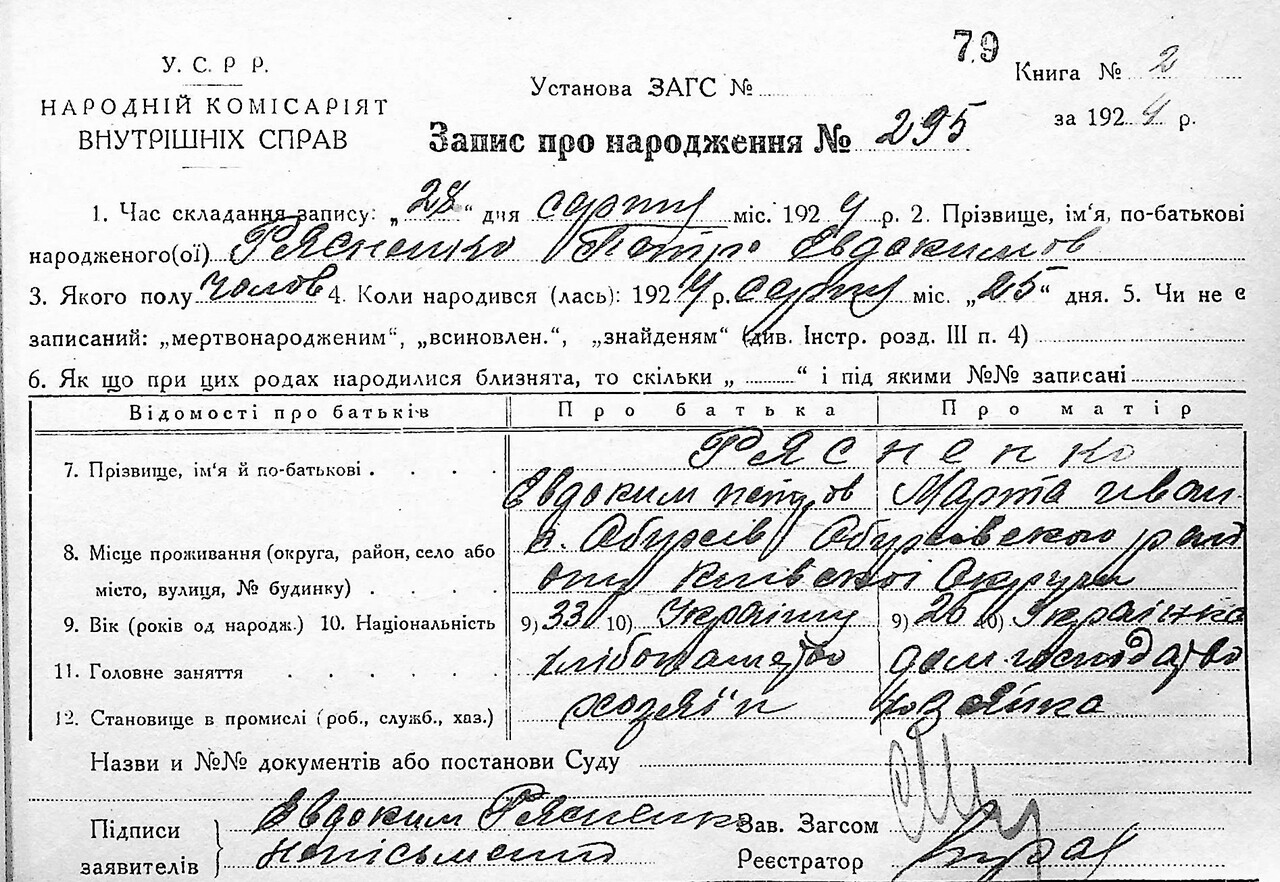 79
У. С. Р Р.
НАРОДНІЙ КОМІСАРІЯТ
ВНУТРІШНІХ СПРАВ
Установа ЗАГС №
Книга № 2
за 1924 р.
Запис про народження № 295
1. Час складання запису: „28“ дня серпня міс. 1924 р. 2. Прізвище, ім'я, по-батькові
народженого(ої) Рясненко Петро Євдокимов
3. Якого полу чолов 4. Коли народився (лась): 1924 р. серпня міс. „25“ дня. 5. Чи не є
записаний: „мертвонародженим“, „всиновлен.“, „знайденям“ (див. Інстр. розд. III п. 4)
6. Як що при цих родах народилися близнята, то скільки „ “ і під якими №№ записані
Відомості про батьків Про батька Про матір
7. Прізвище, ім'я й по-батькові Рясненко
Євдоким Петров Марта Иван
8. Місце проживання (округа, район, село або
місто, вулиця, № будинку)
с. Обухів Обухівского рай
ону Київскої Округи
9. Вік (років од народж.) 10. Національність 9) 33 10) Українц 9) 26 10) Українка
11. Головне заняття хлібопашество дом господарство
12. Становище в промислі (роб., служб., хаз.) хозяїн хозяйка
Назви и №№ документів або постанови Суду
Підписи
заявителів
Євдоким Рясненко
неписьмений
Зав. Загсом
Реєстратор